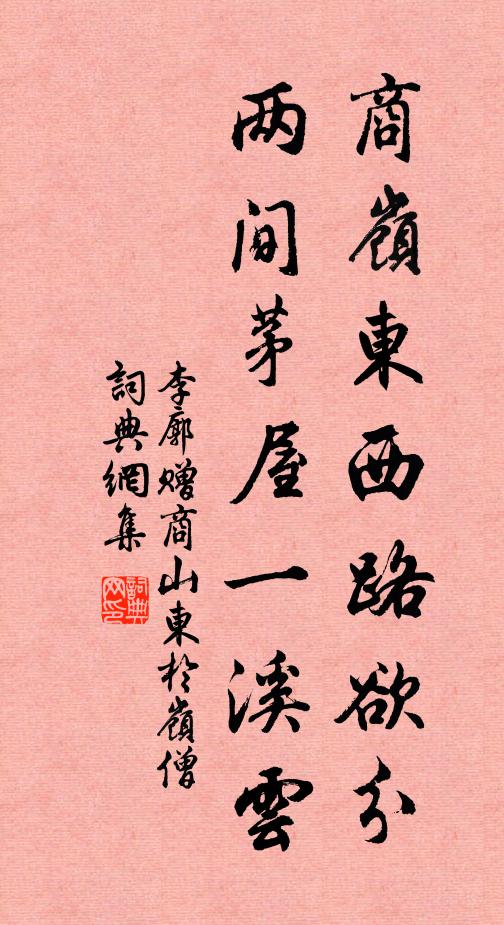 商嶺東西路欲分
两间茅屋一溪雲
李廓赠商山東於嶺僧
詞典網集
詞典网印